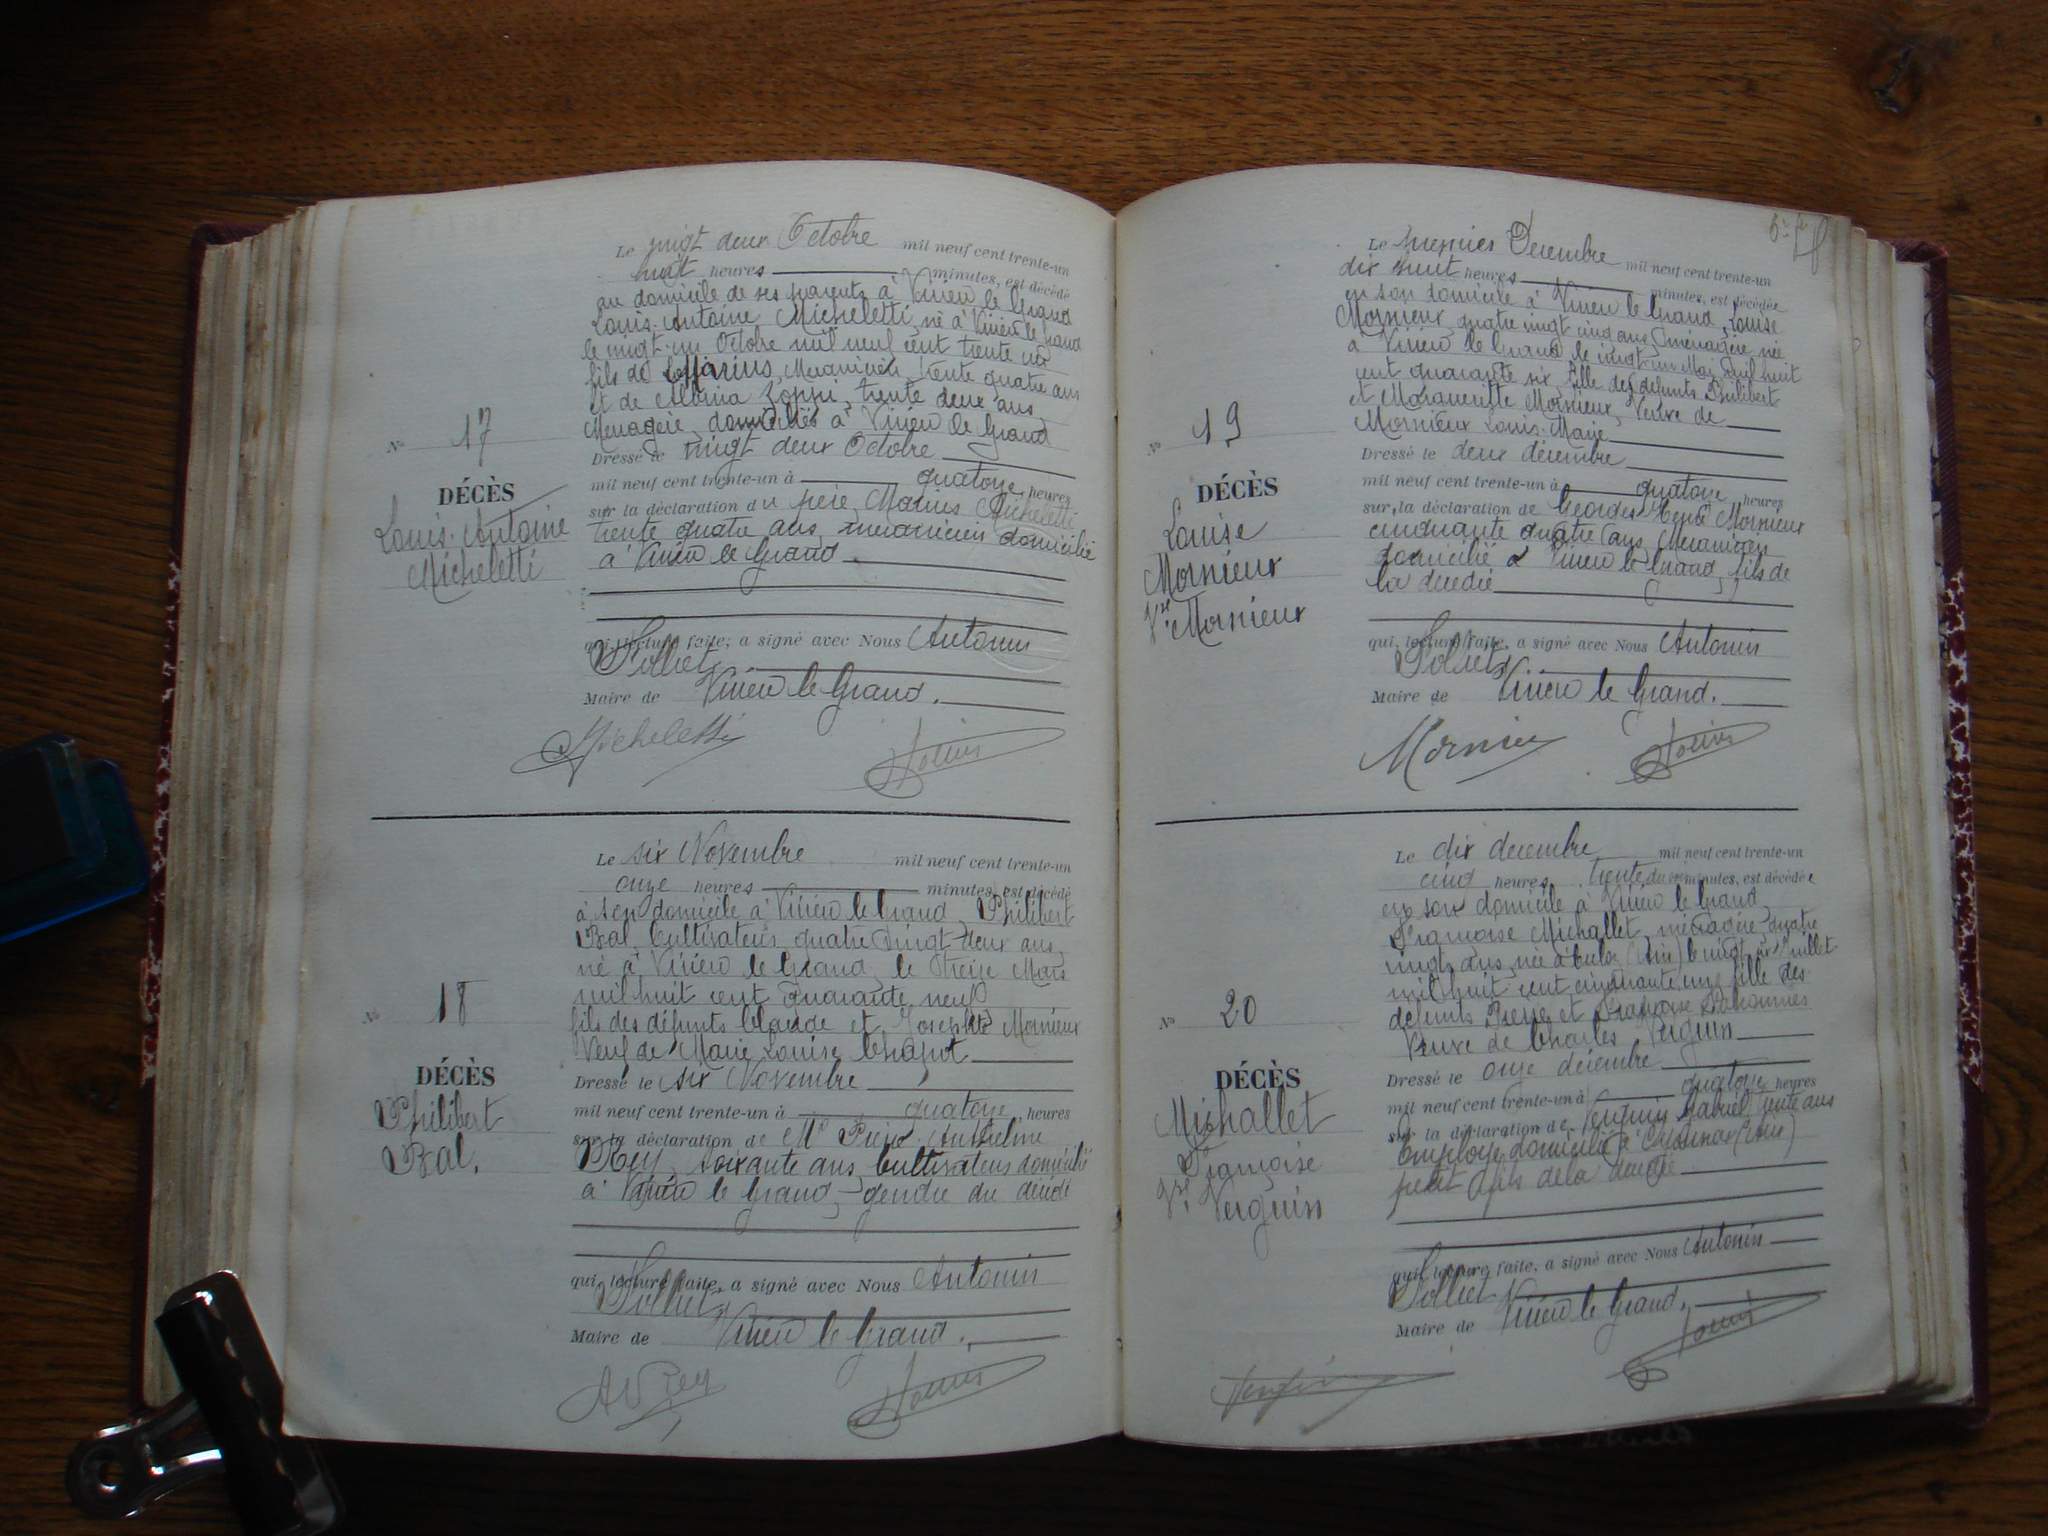 Le vingt deux Octobre mil neuf cent trente-un
huit heures minutes, est décédé
au domicile de ses parents à Virieu le Grand
Louis-Antoine Micheletti, né à Virieu le Grand
le vingt-un Octobre mil neuf cent trente un
fils de Marius, Mécanicien, trente quatre ans
et de Albina Zoppi, trente deux ans
Ménagère, domiciliés à Virieu le Grand
N° 17
Dressé le vingt deux Octobre
DÉCÈS
mil neuf cent trente-un à quatorze heures
Louis-Antoine
Micheletti
sur la déclaration du père, Marius Micheletti
trente quatre ans, mécanicien domicilié
à Virieu le Grand
qui, lecture faite, a signé avec Nous Antonin
Solliet
Maire de Virieu le Grand.
Micheletti
Le six Novembre mil neuf cent trente-un
onze heures minutes, est décédé
à son domicile à Virieu le Grand, Philibert
Bal, Cultivateur, quatre vingt deux ans,
né à Virieu le Grand, le treize Mars
mil huit cent quarante neuf
N° 18
fils des défunts Claude et Josephte Mornieux
Veuf de Marie Louise Chapot
DÉCÈS
Dressé le six Novembre
Philibert
Bal.
mil neuf cent trente-un à quatorze heures
sur la déclaration de Mr Pierre Anthelme
Rey, soixante ans, Cultivateur domicilié
à Virieu le Grand, gendre du décédé
qui, lecture faite, a signé avec Nous Antonin
Solliet
Maire de Virieu le Grand.
Rey
Le premier Décembre mil neuf cent trente-un
dix huit heures minutes, est décédée
en son domicile à Virieu le Grand, Louise
Mornieux, quatre vingt cinq ans, ménagère née
à Virieu le Grand le vingt un Mai mil huit
cent quarante six, fille des défunts Philibert
et Marguerite Mornieux, Veuve de
Mornieux Louis-Marie
N° 19
Dressé le deux décembre
DÉCÈS
mil neuf cent trente-un à quatorze heures
Louise
Mornieux
Vve Mornieux
sur la déclaration de Georges Mornieux
cinquante quatre ans, Mécanicien
domicilié à Virieu le Grand, fils de
la décédée
qui, lecture faite, a signé avec Nous Antonin
Solliet
Maire de Virieu le Grand.
Mornieu
Le dix décembre mil neuf cent trente-un
cinq heures trente minutes, est décédée
en son domicile à Virieu le Grand
Françoise Michallet, ménagère, quatre
vingt ans, née à Culoz (Ain) le vingt Juillet
mil huit cent cinquante une, fille des
N° 20
défunts Pierre et Françoise
Veuve de Charles Verguin
DÉCÈS
Dressé le onze décembre
Michallet
Françoise
Vve Verguin
mil neuf cent trente-un à quatorze heures
sur la déclaration de Verguin Gabriel, trente ans
Employé, domicilié à (Ain)
petit fils de la décédée
qui, lecture faite, a signé avec Nous Antonin
Solliet
Maire de Virieu le Grand.